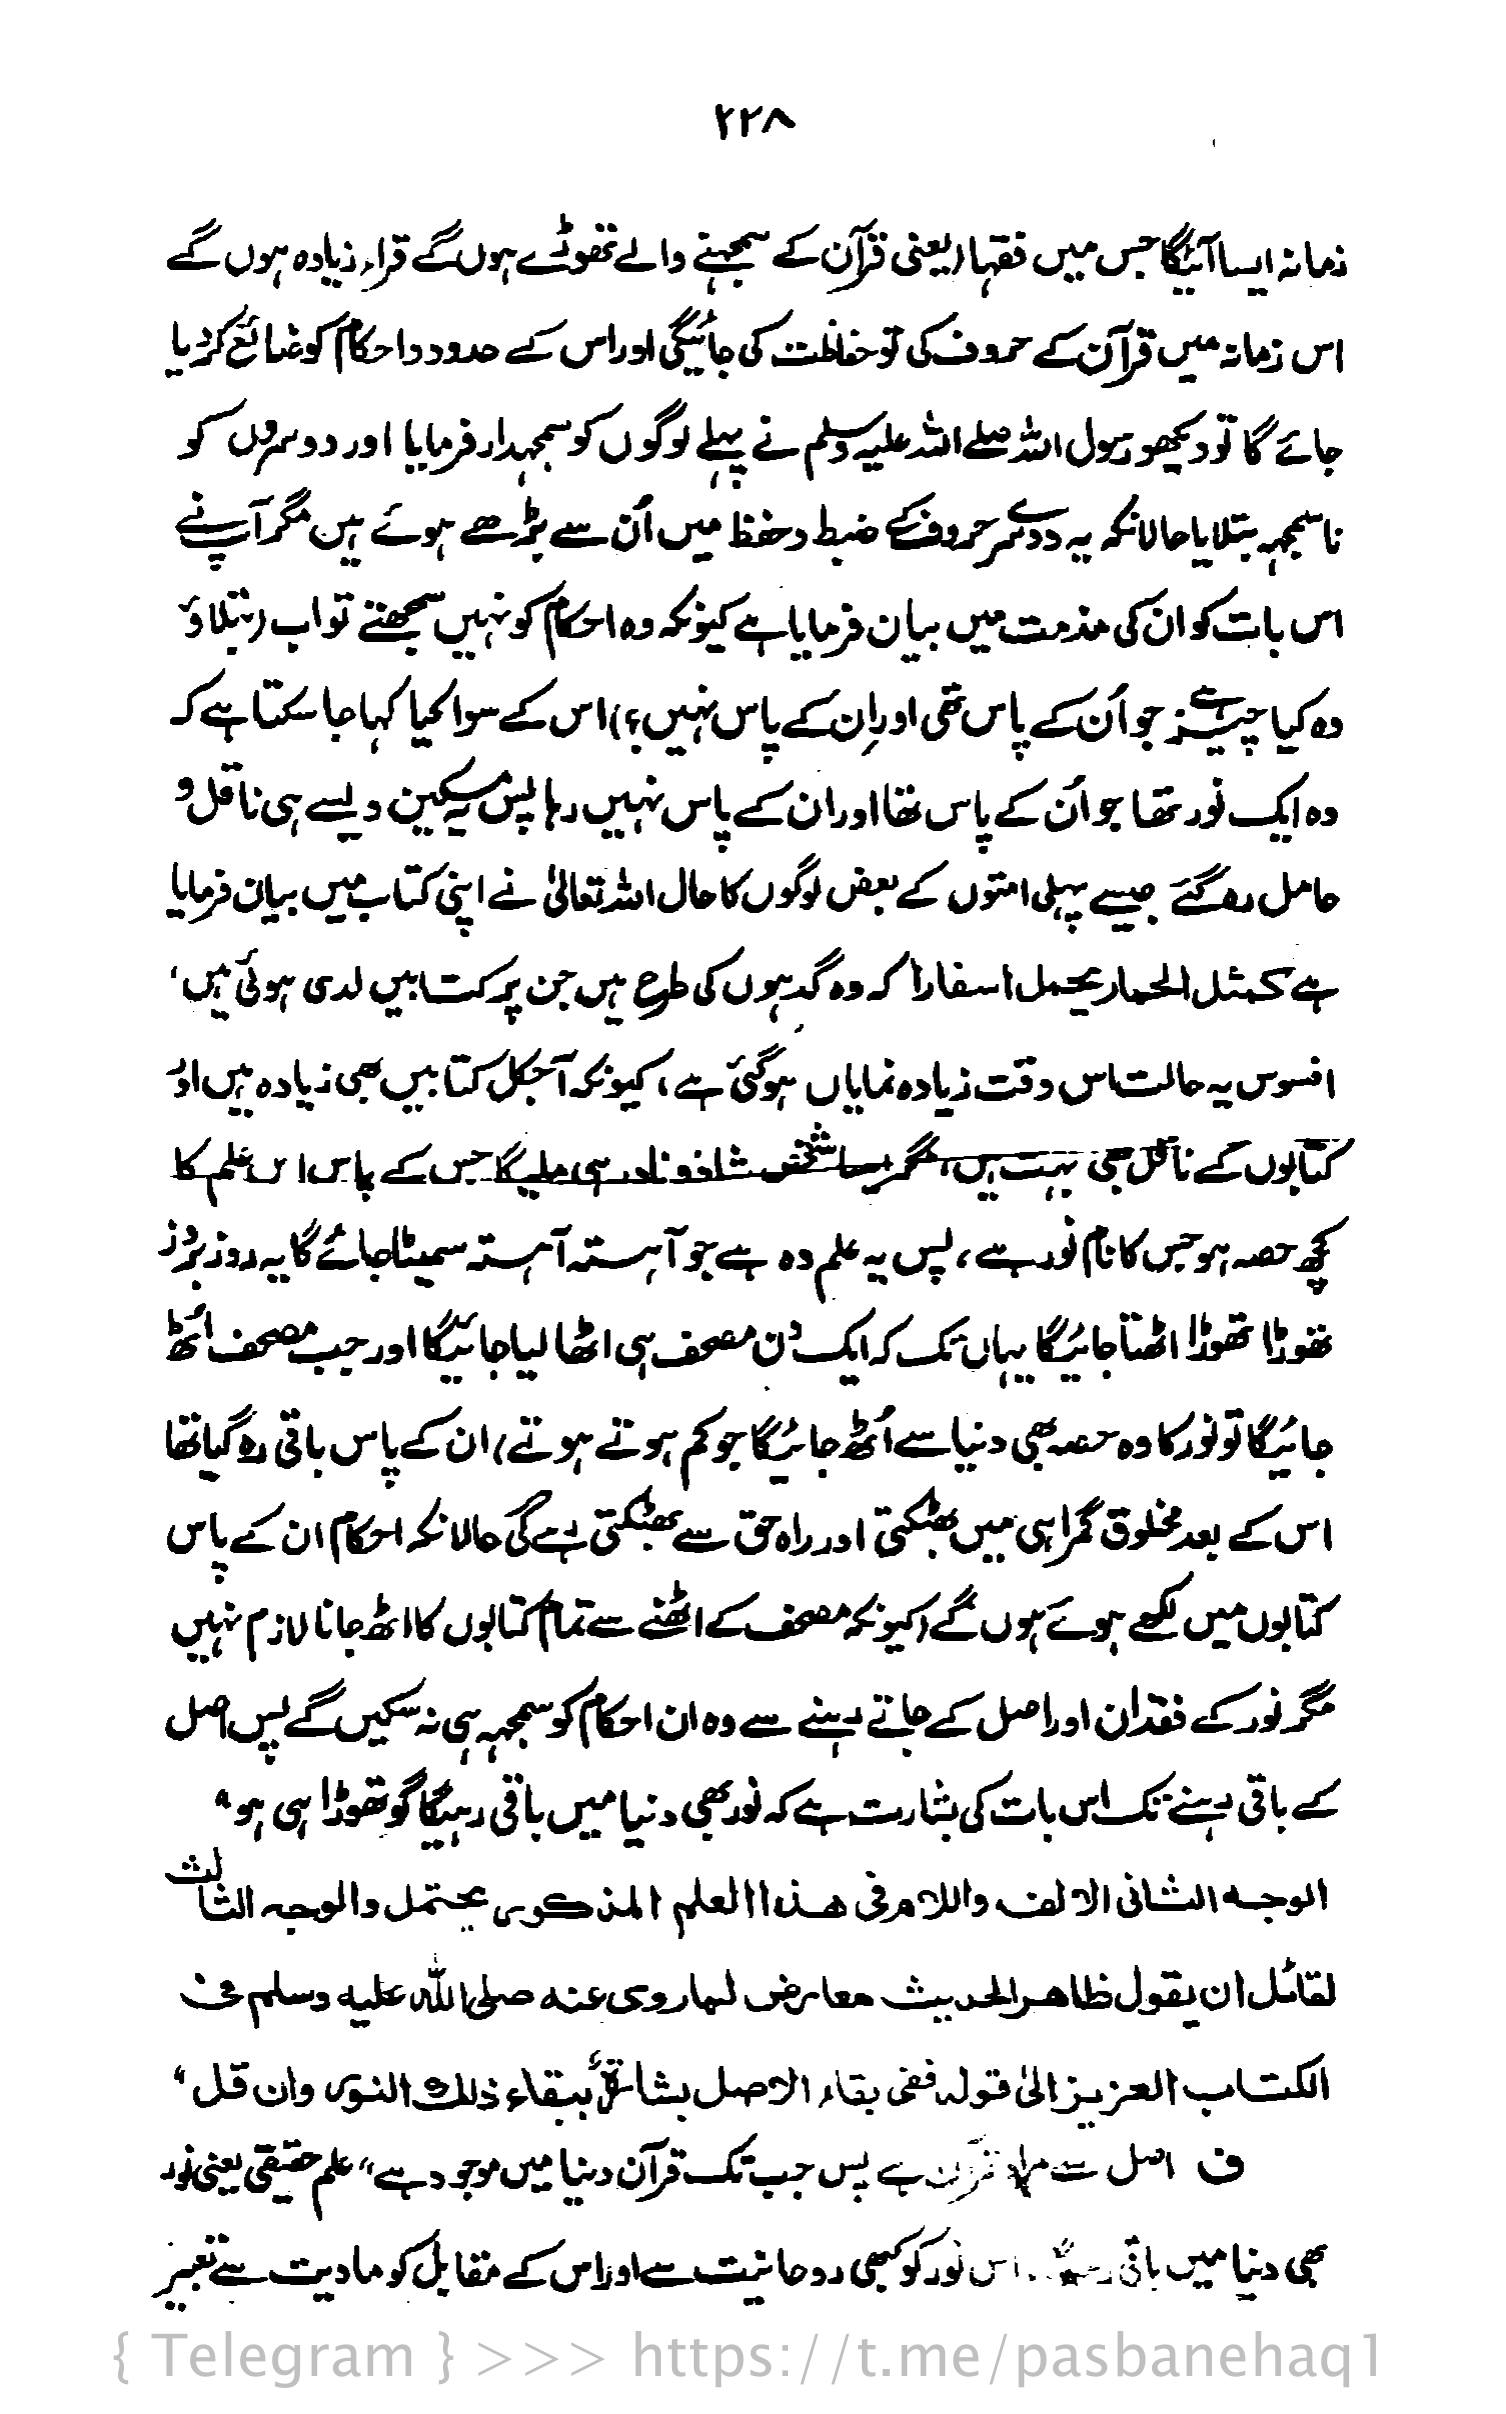 ۲۲۸
زمانہ ایسا آئیگا جس میں فقہا (یعنی قرآن کے سمجھنے والے تھوڑے ہوں گے قراء زیادہ ہوں گے
اس زمانہ میں قرآن کے حروف کی تو حفاظت کی جائیگی اور اس کے حدود و احکام کو ضائع کر دیا
جائے گا تو دیکھو رسول اللہ صلے اللہ علیہ وسلم نے پہلے لوگوں کو سمجھدار فرمایا اور دوسروں کو
ناسمجھہ بتلایا حالانکہ یہ دوسرے حروف کے ضبط و حفظ میں اُن سے بڑھے ہوئے ہیں مگر آپ نے
اس بات کو ان کی مذمت میں بیان فرمایا ہے کیونکہ وہ احکام کو نہیں سمجھتے تو اب (بتلاؤ
وہ کیا چیز ہے جو اُن کے پاس تھی اور اِن کے پاس نہیں؟) اس کے سوا کیا کہا جا سکتا ہے کہ
وہ ایک نور تھا جو اُن کے پاس تھا اور ان کے پاس نہیں رہا پس یہ مسکین ویسے ہی ناقل و
حامل رہ گئے جیسے پہلی امتوں کے بعض لوگوں کا حال اللہ تعالیٰ نے اپنی کتاب میں بیان فرمایا
ہے کمثل الحمار یحمل اسفارا کہ وہ گدہوں کی طرح ہیں جن پر کتابیں لدی ہوئی ہیں،
افسوس یہ حالت اس وقت زیادہ نمایاں ہوگئی ہے، کیونکہ آجکل کتابیں بھی زیادہ ہیں اور
کتابوں کے ناقل بھی بہت ہیں، مگر ایسا شخص شاذ و نادر ہی ملیگا جس کے پاس اس علم کا
کچھ حصہ ہو جس کا نام نور ہے، پس یہ علم وہ ہے جو آہستہ آہستہ سمیٹا جائے گا یہ روز بروز
تھوڑا تھوڑا اٹھتا جائیگا یہاں تک کہ ایک دن مصحف ہی اٹھا لیا جائیگا اور جب مصحف اُٹھ
جائیگا تو نور کا وہ حصہ بھی دنیا سے اُٹھ جائیگا جو کم ہوتے ہوتے) ان کے پاس باقی رہ گیا تھا
اس کے بعد مخلوق گمراہی میں بھٹکتی اور راہ حق سے بھٹکتی رہے گی حالانکہ احکام ان کے پاس
کتابوں میں لکھے ہوئے ہوں گے (کیونکہ مصحف کے اٹھنے سے تمام کتابوں کا اٹھ جانا لازم نہیں
مگر نور کے فقدان اور اصل کے جاتے رہنے سے وہ ان احکام کو سمجھہ ہی نہ سکیں گے پس اصل
کے باقی رہنے تک اس بات کی بشارت ہے کہ نور بھی دنیا میں باقی رہیگا گو تھوڑا ہی ہو ۹
الوجہ الثانی الالف واللام فی ھذا العلم المذکور یحتمل والوجہ الثالث
لقائل ان یقول ظاھر الحدیث معارض لما روی عنہ صلی اللہ علیہ وسلم فی
الکتاب العزیز الیٰ قولہ ففی بقاء الاصل بشارۃ ببقاء ذلک النور وان قل،
ف اصل سے مراد قرآن ہے پس جب تک قرآن دنیا میں موجود ہے، علم حقیقی یعنی نور
بھی دنیا میں باقی رہیگا. اس نور کو کبھی روحانیت سے اور اس کے مقابل کو مادیت سے تعبیر
{ Telegram } >>> https://t.me/pasbanehaq1